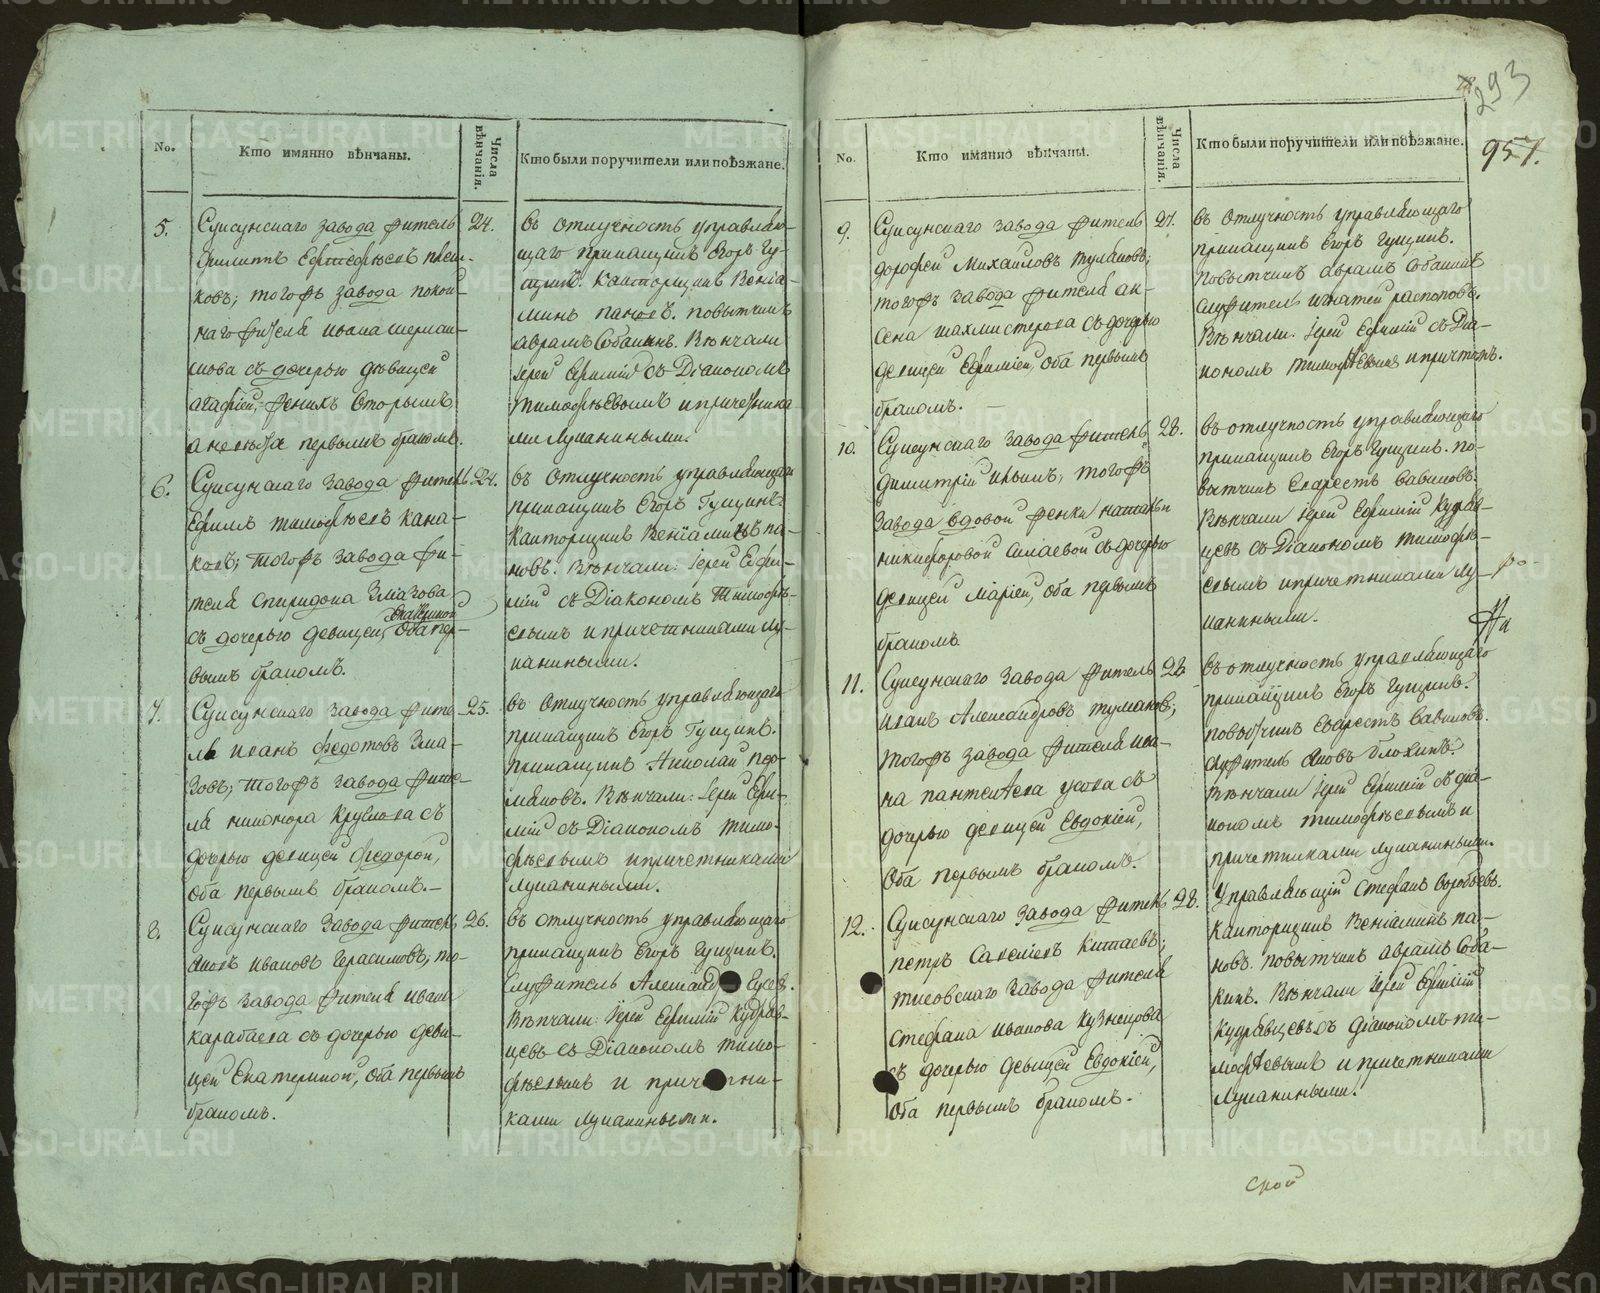 No.
Кто имянно вѣнчаны.
Числа вѣнчанія.
Кто были поручители или поѣзжане.
5.
Сунсунскаго завода житель
Филиппъ
ковъ; тогожъ завода покой-
наго жителя ивана
нова съ дочерью дѣвицей
агафіей, женихъ вторымъ
а невѣста первымъ бракомъ.
24.
въ отлучность управляю-
щаго прикащикъ Егоръ Гу-
щинъ. Канторщикъ Веніа-
минъ пановъ. повытчикъ
аврамъ Собакинъ. Вѣнчали
Іерей Ефимій съ Діакономъ
тимофѣевымъ и причетника
ми Луканиными.
6.
Сунсунскаго завода житель
Ефимъ тимофѣевъ кана-
ковъ; тогожъ завода жи-
теля спиридона Змазова
Екатериной
съ дочерью девицей, Оба пер-
вымъ бракомъ.
24.
въ отлучность управляющаго
прикащикъ Егоръ Гущинъ.
Канторщикъ Веніаминъ па-
новъ. Вѣнчали: Іерей Ефи-
мій съ Діакономъ тимофѣ-
евымъ и причетниками лу-
каниными.
7.
Сунсунскаго завода жите-
ль иванъ федотовъ Зма-
зовъ; тогожъ завода жите-
ля никонора Круглова съ
дочерью девицей федорой,
Оба первымъ бракомъ.—
25.
въ отлучность управляющаго
прикащикъ Егоръ Гущинъ.
прикащикъ Николай
Вѣнчали: Іерей Ефи-
мій съ Діакономъ тимо-
фѣевымъ и причетниками
Луканиными.
8.
Сунсунскаго завода житель
яковъ ивановъ Герасимовъ; то-
гожъ завода жителя ивана
карабаева съ дочерью деви-
цей Екатериной, Оба первымъ
бракомъ.
26.
въ отлучность управляющаго
прикащикъ Егоръ Гущинъ.
служитель
Вѣнчали: Іерей Ефимій Кудряв-
цевъ съ Діакономъ тимо-
фѣевымъ и причетни-
ками Луканиными.
293
957.
No.
Кто имянно вѣнчаны.
Числа вѣнчанія.
Кто были поручители или поѣзжане.
9.
Сунсунскаго завода житель
дорофей Михаиловъ тулановъ;
тогожъ завода жителя ак-
сена шахмистерова съ дочерью
девицей Ефиміей, Оба первымъ
бракомъ.
27.
въ отлучность управляющаго
прикащикъ Егоръ Гущинъ.
повытчикъ аврамъ Собакинъ
служитель игнатей распоповъ.
Вѣнчали: Іерей Ефимій съ Діа-
кономъ тимофѣевымъ и причтомъ.
10.
Сунсунскаго завода житель
Димитрій ильинъ; тогожъ
завода вдовой женки натальи
никифоровой силаевой съ дочерью
девицей Маріей, Оба первымъ
бракомъ
28.
въ отлучность управляющаго
прикащикъ Егоръ Гущинъ. по-
вытчикъ Еварестъ вавиловъ.
Вѣнчали Іерей Ефимій Кудряв-
цевъ съ Діакономъ тимофѣ-
евымъ и причетниками лу-
каниными.
11.
Сунсунскаго завода житель
иванъ Александровъ тулановъ;
тогожъ завода жителя ива-
на пантелѣева усова съ
дочерью девицей Евдокіей,
Оба первымъ бракомъ.
28
въ отлучность управляющаго
прикащикъ Егоръ Гущинъ.
повытчикъ Еварестъ вавиловъ.
служитель яковъ блохинъ.
Вѣнчали Іерей Ефимій съ діа-
кономъ тимофѣевымъ и
причетниками луканиными.
12.
Сунсунскаго завода житель
петръ Савельевъ Китаевъ;
тисовскаго завода жителя
стефана иванова кузнецова
съ дочерью девицей Евдокіей,
Оба первымъ бракомъ.
28.
Управляющій стефанъ воробьевъ.
канторщикъ Веніаминъ па-
новъ. повытчикъ аврамъ Соба-
кинъ. Вѣнчали Іерей Ефимій
Кудрявцевъ съ діакономъ ти-
мофѣевымъ и причетниками
Луканиными.
ской
METRIKI.GASO-URAL.RU